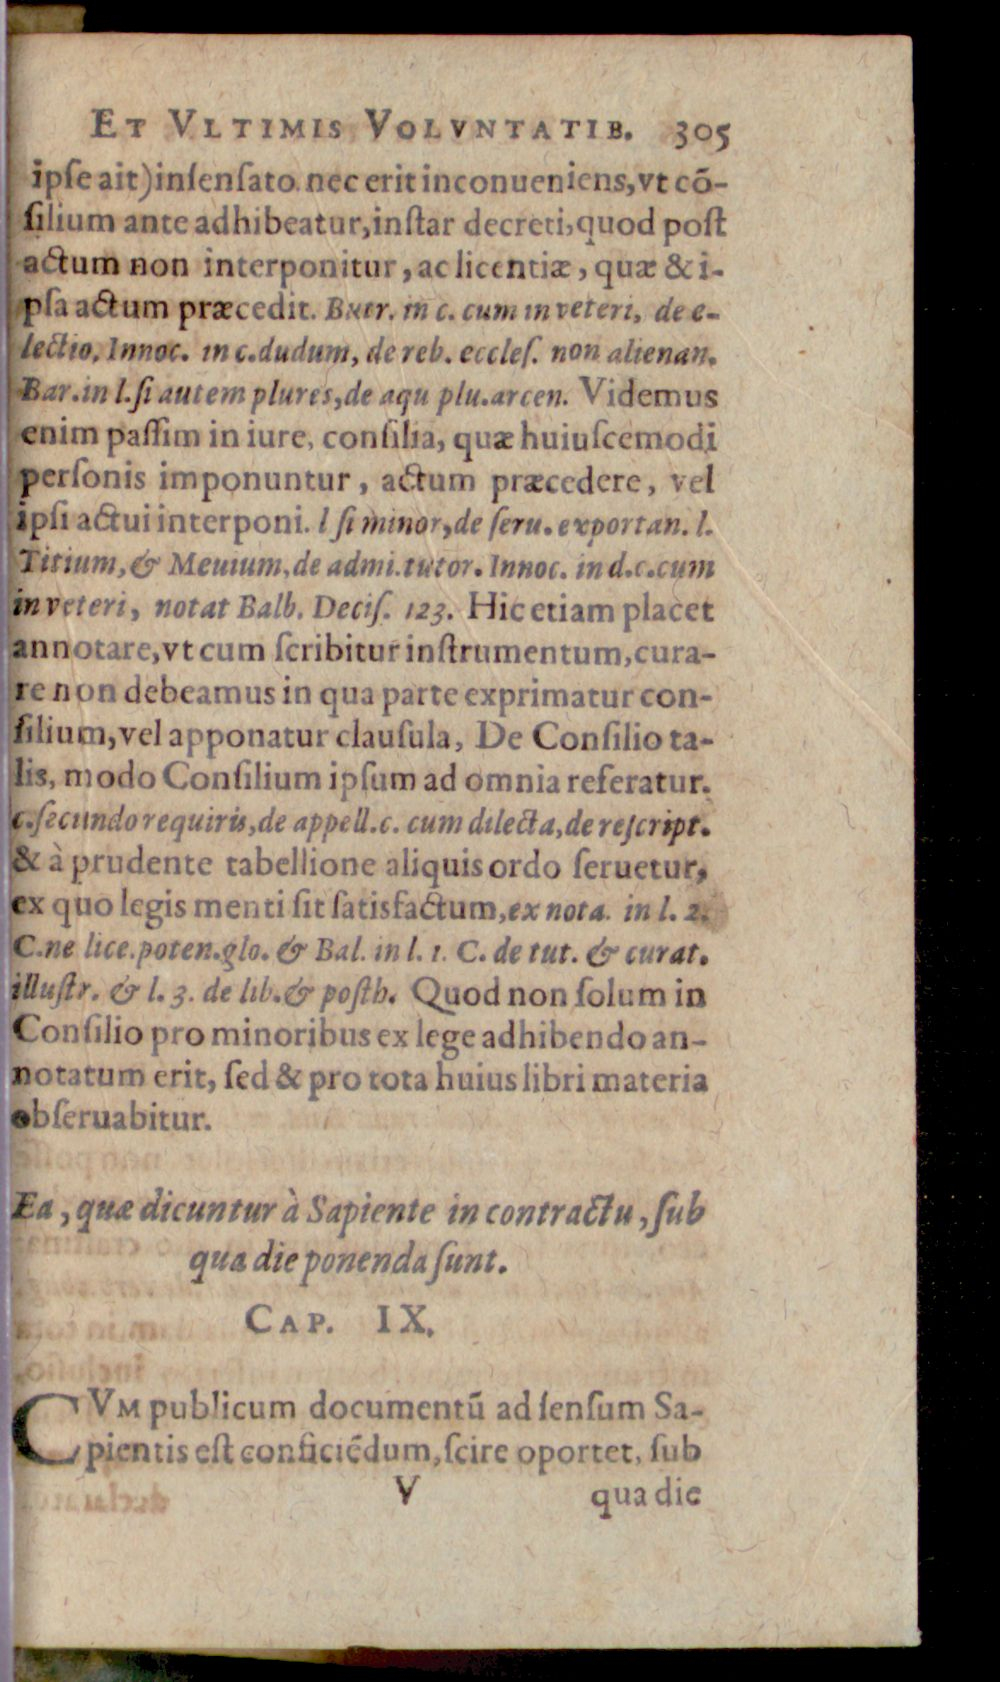 ET VLTIMIS VOLVNTATIB. 305
ipſe ait) inſenſato nec erit inconueniens, vt cō-
ſilium ante adhibeatur, inſtar decreti, quod poſt
actum non interponitur, ac licentiæ, quæ & i-
pſa actum præcedit. Butr. in c. cum in veteri, de e-
lectio, Innoc. in c. dudum, de reb. eccleſ. non alienan.
Bar. in l. ſi autem plures, de aqu plu. arcen. Videmus
enim paſſim in iure, conſilia, quæ huiuſcemodi
perſonis imponuntur, actum præcedere, vel
ipſi actui interponi. l ſi minor, de ſeru. exportan. l.
Titium, & Meuium, de admi. tutor. Innoc. in d. c. cum
in veteri, notat Balb. Deciſ. 123. Hic etiam placet
annotare, vt cum ſcribitur inſtrumentum, cura-
re non debeamus in qua parte exprimatur con-
ſilium, vel apponatur clauſula, De Conſilio ta-
lis, modo Conſilium ipſum ad omnia referatur.
c. ſecundo requiris, de appell. c. cum dilecta, de reſcript.
& à prudente tabellione aliquis ordo ſeruetur,
ex quo legis menti ſit ſatisfactum, ex nota. in l. 2.
C. ne lice. poten. glo. & Bal. in l. 1. C. de tut. & curat.
illuſtr. & l. 3. de lib. & poſth. Quod non ſolum in
Conſilio pro minoribus ex lege adhibendo an-
notatum erit, ſed & pro tota huius libri materia
obſeruabitur.
Ea, quæ dicuntur à Sapiente in contractu, ſub
qua die ponenda ſunt.
CAP. IX.
CVM publicum documentū ad ſenſum Sa-
pientis eſt conficiēdum, ſcire oportet, ſub
V qua die